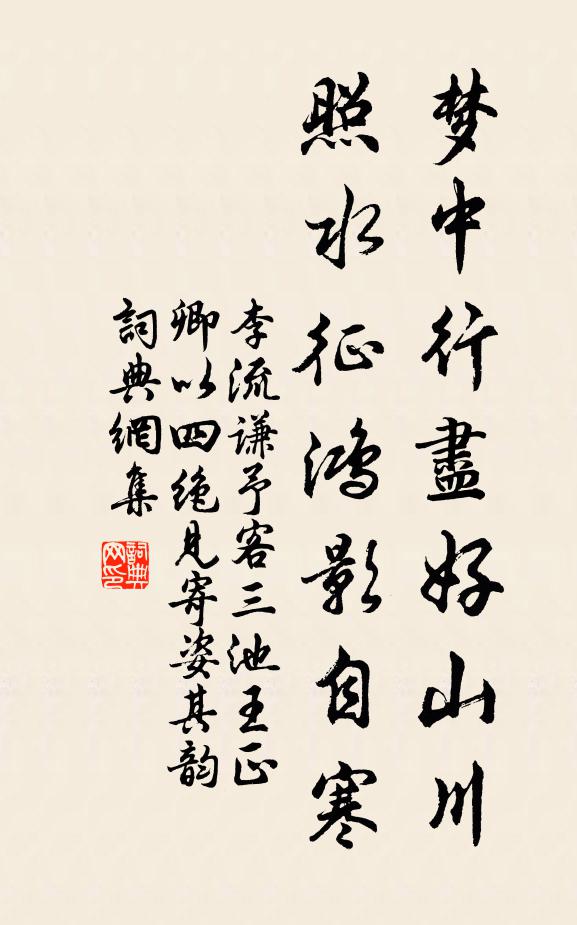 梦中行盡好山川
照水征鴻影自寒
李流謙予客三池王正
卿以四絶見寄姿其韵
詞典網集
詞典网印